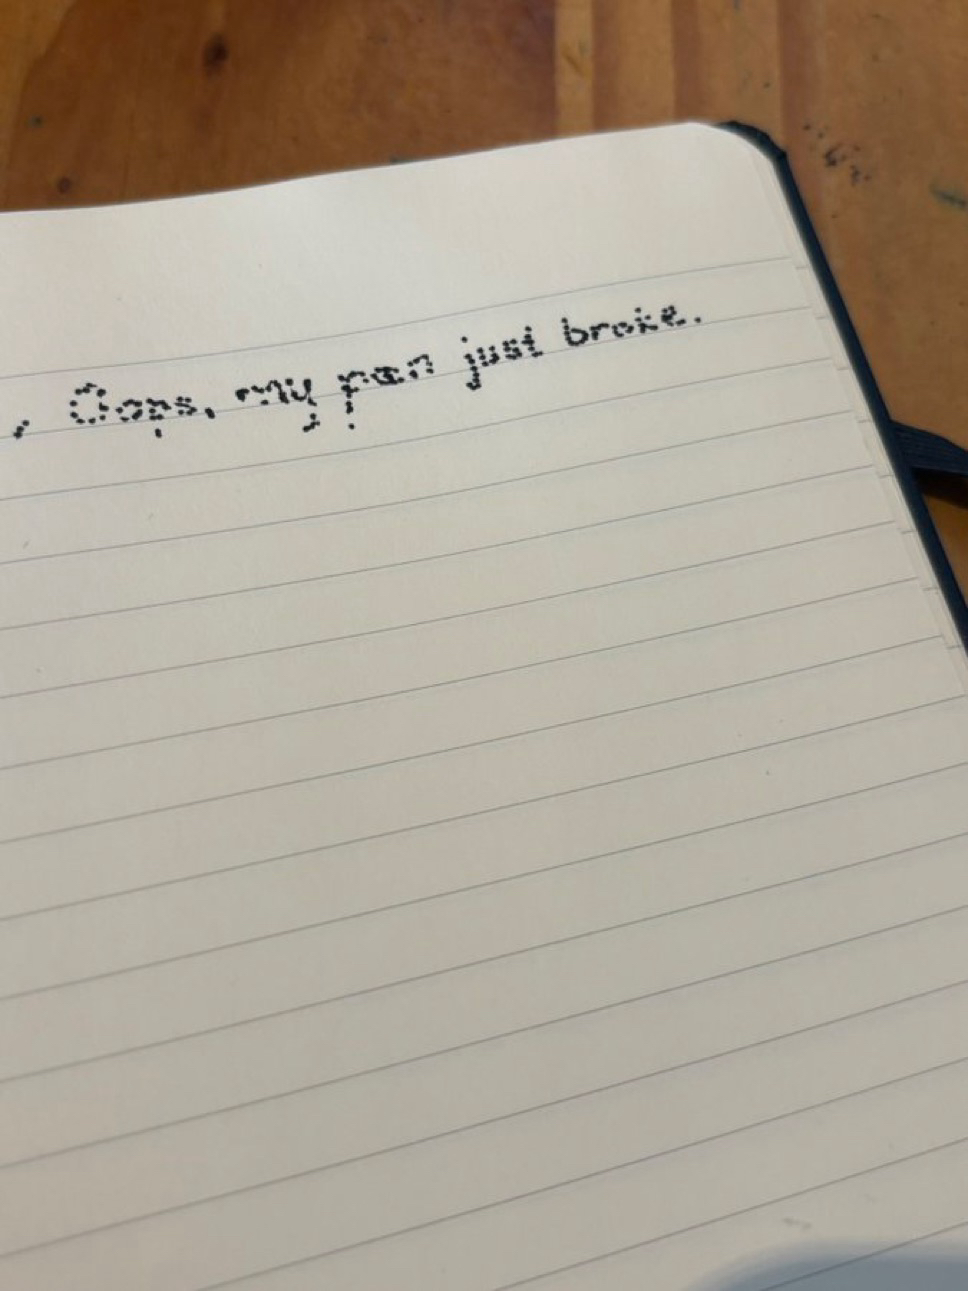 , Oops, my pen just broke.